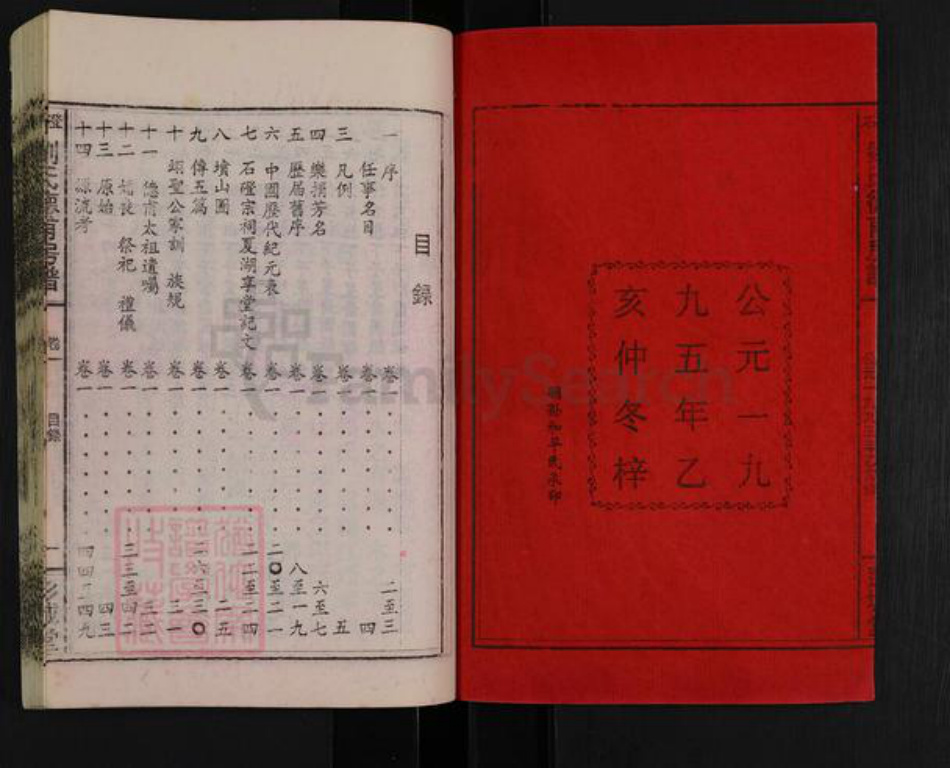 公元一九
九五年乙
亥仲冬梓
目錄
一 序 卷一 二至三
任事名目 卷一 四
三 凡例 卷一 五
四 樂捐芳名 卷一 六至七
五 歷屆舊序 卷一 八至一九
六 中國歷代紀元表 卷一 二〇至二一
七 石磴宗祠夏湖享堂記文 卷一 二二至二四
八 墳山圖 卷一 二五
九 傳五篇 卷一 二六至三〇
十 翊聖公家訓 族規 卷一 三一
十一 德甫太祖遺囑 卷一 三二
十二 祭祀 禮儀 卷一 三三至四二
十三 原始 卷一 四三
十四 源流考 卷一 四九
目錄
FamilySearch